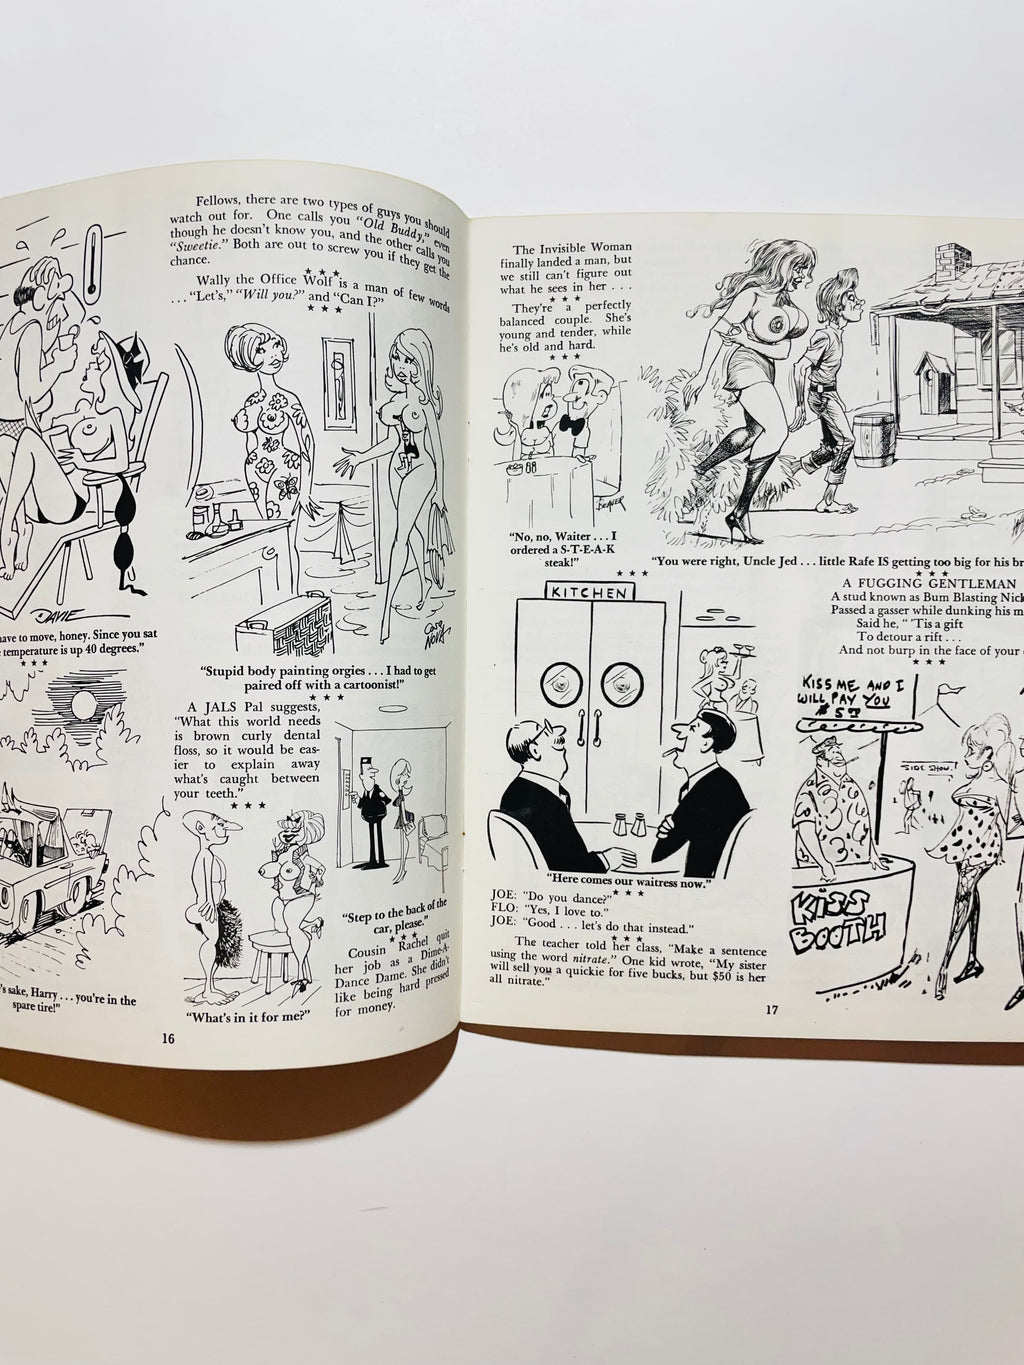 Fellows, there are two types of guys you should
watch out for. One calls you "Old Buddy," even
though he doesn't know you, and the other calls you
"Sweetie." Both are out to screw you if they get the
chance.
★ ★ ★
Wally the Office Wolf is a man of few words
. . . "Let's," "Will you?" and "Can I?"
★ ★ ★
DAVIE
ave to move, honey. Since you sat
temperature is up 40 degrees."
★ ★ ★
CASA
NOVA
"Stupid body painting orgies . . . I had to get
paired off with a cartoonist!"
★ ★ ★
A JALS Pal suggests,
"What this world needs
is brown curly dental
floss, so it would be eas-
ier to explain away
what's caught between
your teeth."
★ ★ ★
's sake, Harry . . . you're in the
spare tire!"
"What's in it for me?"
"Step to the back of the
car, please."
★ ★ ★
Cousin Rachel quit
her job as a Dime-A-
Dance Dame. She didn't
like being hard pressed
for money.
16
The Invisible Woman
finally landed a man, but
we still can't figure out
what he sees in her . . .
★ ★ ★
They're a perfectly
balanced couple. She's
young and tender, while
he's old and hard.
★ ★ ★
BEAVER
"No, no, Waiter . . . I
ordered a S-T-E-A-K
steak!"
★ ★ ★
"You were right, Uncle Jed . . . little Rafe IS getting too big for his br
★ ★ ★
A FUGGING GENTLEMAN
A stud known as Bum Blasting Nick
Passed a gasser while dunking his
Said he, " 'Tis a gift
To detour a rift . . .
And not burp in the face of your
★ ★ ★
KITCHEN
"Here comes our waitress now."
★ ★ ★
JOE: "Do you dance?"
FLO: "Yes, I love to."
JOE: "Good . . . let's do that instead."
★ ★ ★
The teacher told her class, "Make a sentence
using the word nitrate." One kid wrote, "My sister
will sell you a quickie for five bucks, but $50 is her
all nitrate."
KISS ME AND I
WILL PAY YOU
SIDE SHOW!
KISS
BOOTH
17